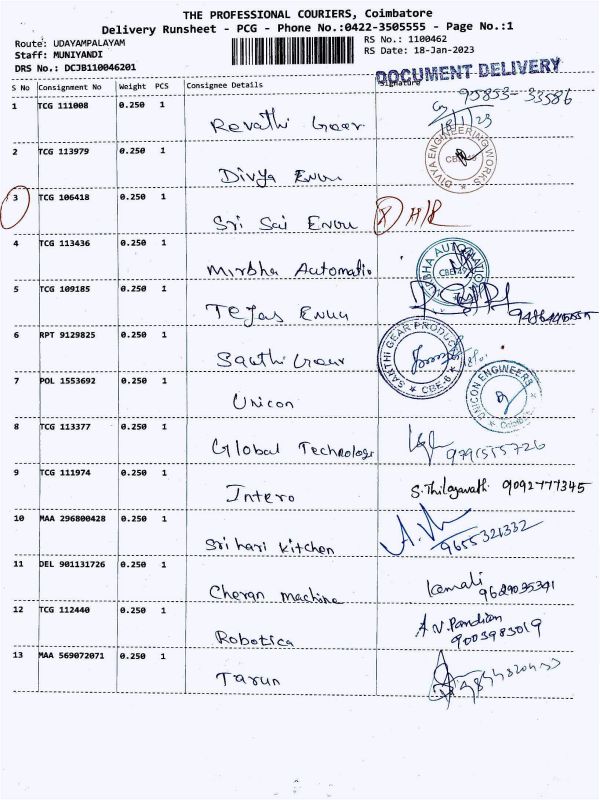 THE PROFESSIONAL COURIERS, Coimbatore
Delivery Runsheet - PCG - Phone No.:0422-3505555 - Page No.:1
Route: UDAYAMPALAYAM
RS No.: 1100462
Staff: MUNIYANDI
RS Date: 18-Jan-2023
DRS No.: DCJB110046201
DOCUMENT DELIVERY
S No Consignment No Weight PCS Consignee Details Signature
1 TCG 111008 0.250 1 Revathi Gear 95853-33586
18/1/23
2 TCG 113979 0.250 1 Divya Engg DIVYA ENGINEERING WORKS
3 TCG 106418 0.250 1 Sri Sai Engg X H/R
4 TCG 113436 0.250 1 Mirbha Automatio CBE-49
5 TCG 109185 0.250 1 Tejas Engg
6 RPT 9129825 0.250 1 Santhi Gear SANTHI GEAR PRODUCTS CBE-6
7 POL 1553692 0.250 1 Unicon UNICON ENGINEERS
8 TCG 113377 0.250 1 Global Technologi 9791555726
9 TCG 111974 0.250 1 Intero S.Thilagavathi 9092777345
10 MAA 296800428 0.250 1 Sri hari kitchen 9655321332
11 DEL 901131726 0.250 1 Cheran machine Kamali 9629035341
12 TCG 112440 0.250 1 Robotica A V.Pandian 9003983019
13 MAA 569072071 0.250 1 Tarun